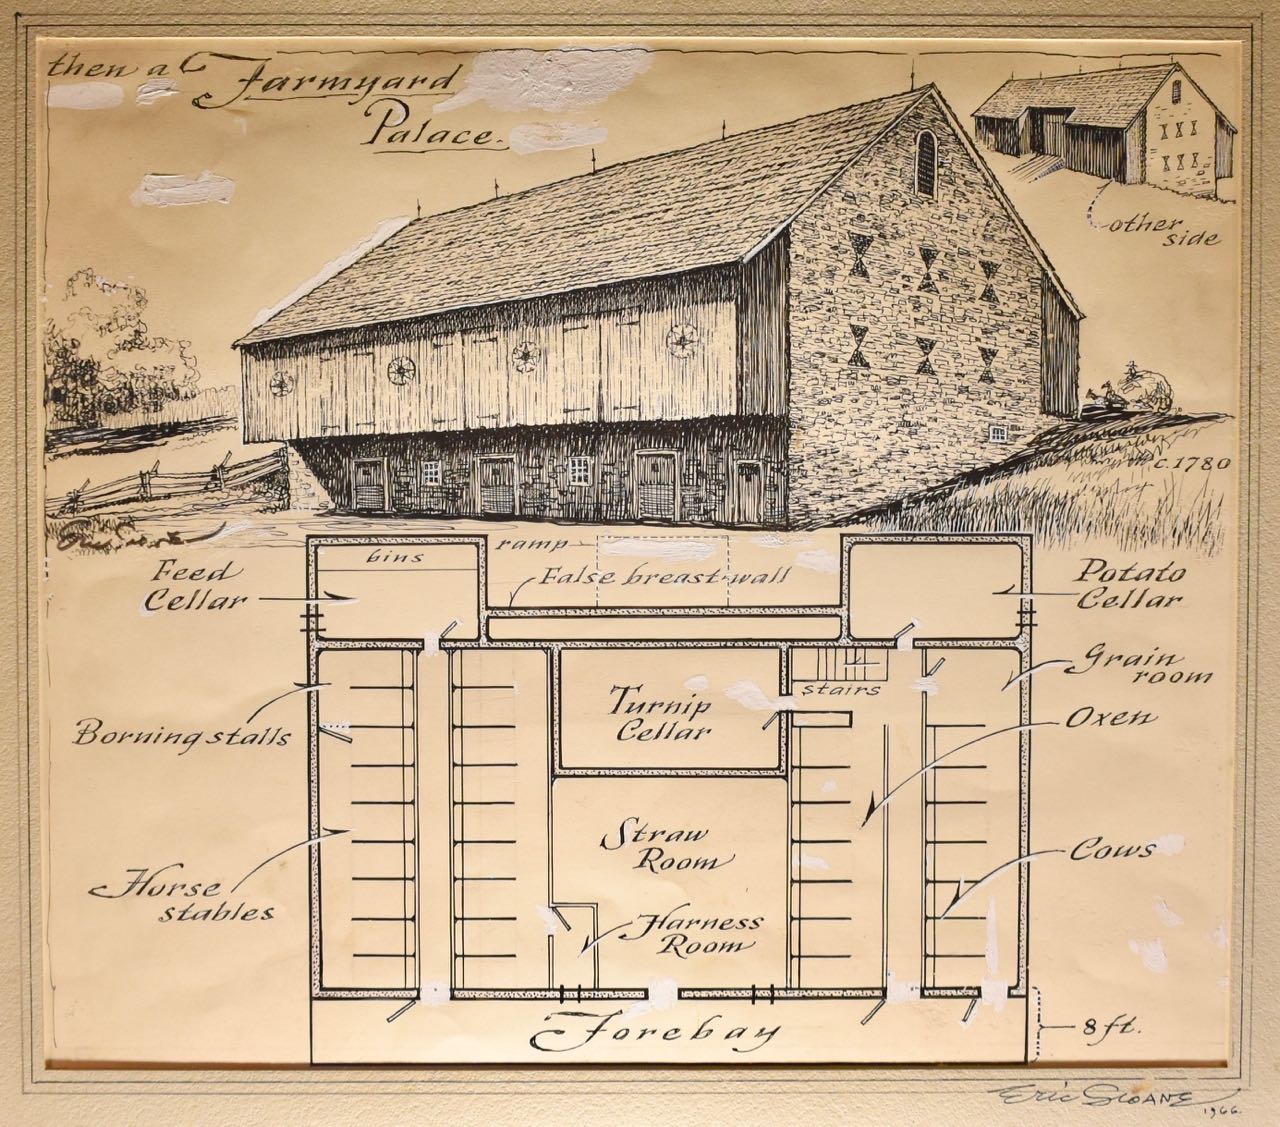 then a Farmyard
Palace.
other
side
c. 1780
Feed
Cellar
bins
ramp
False breast-wall
Potato
Cellar
Grain
room
Borning stalls
Turnip
Cellar
stairs
Oxen
Straw
Room
Cows
Horse
stables
Harness
Room
Forebay
8 ft.
Eric Sloane
1966.